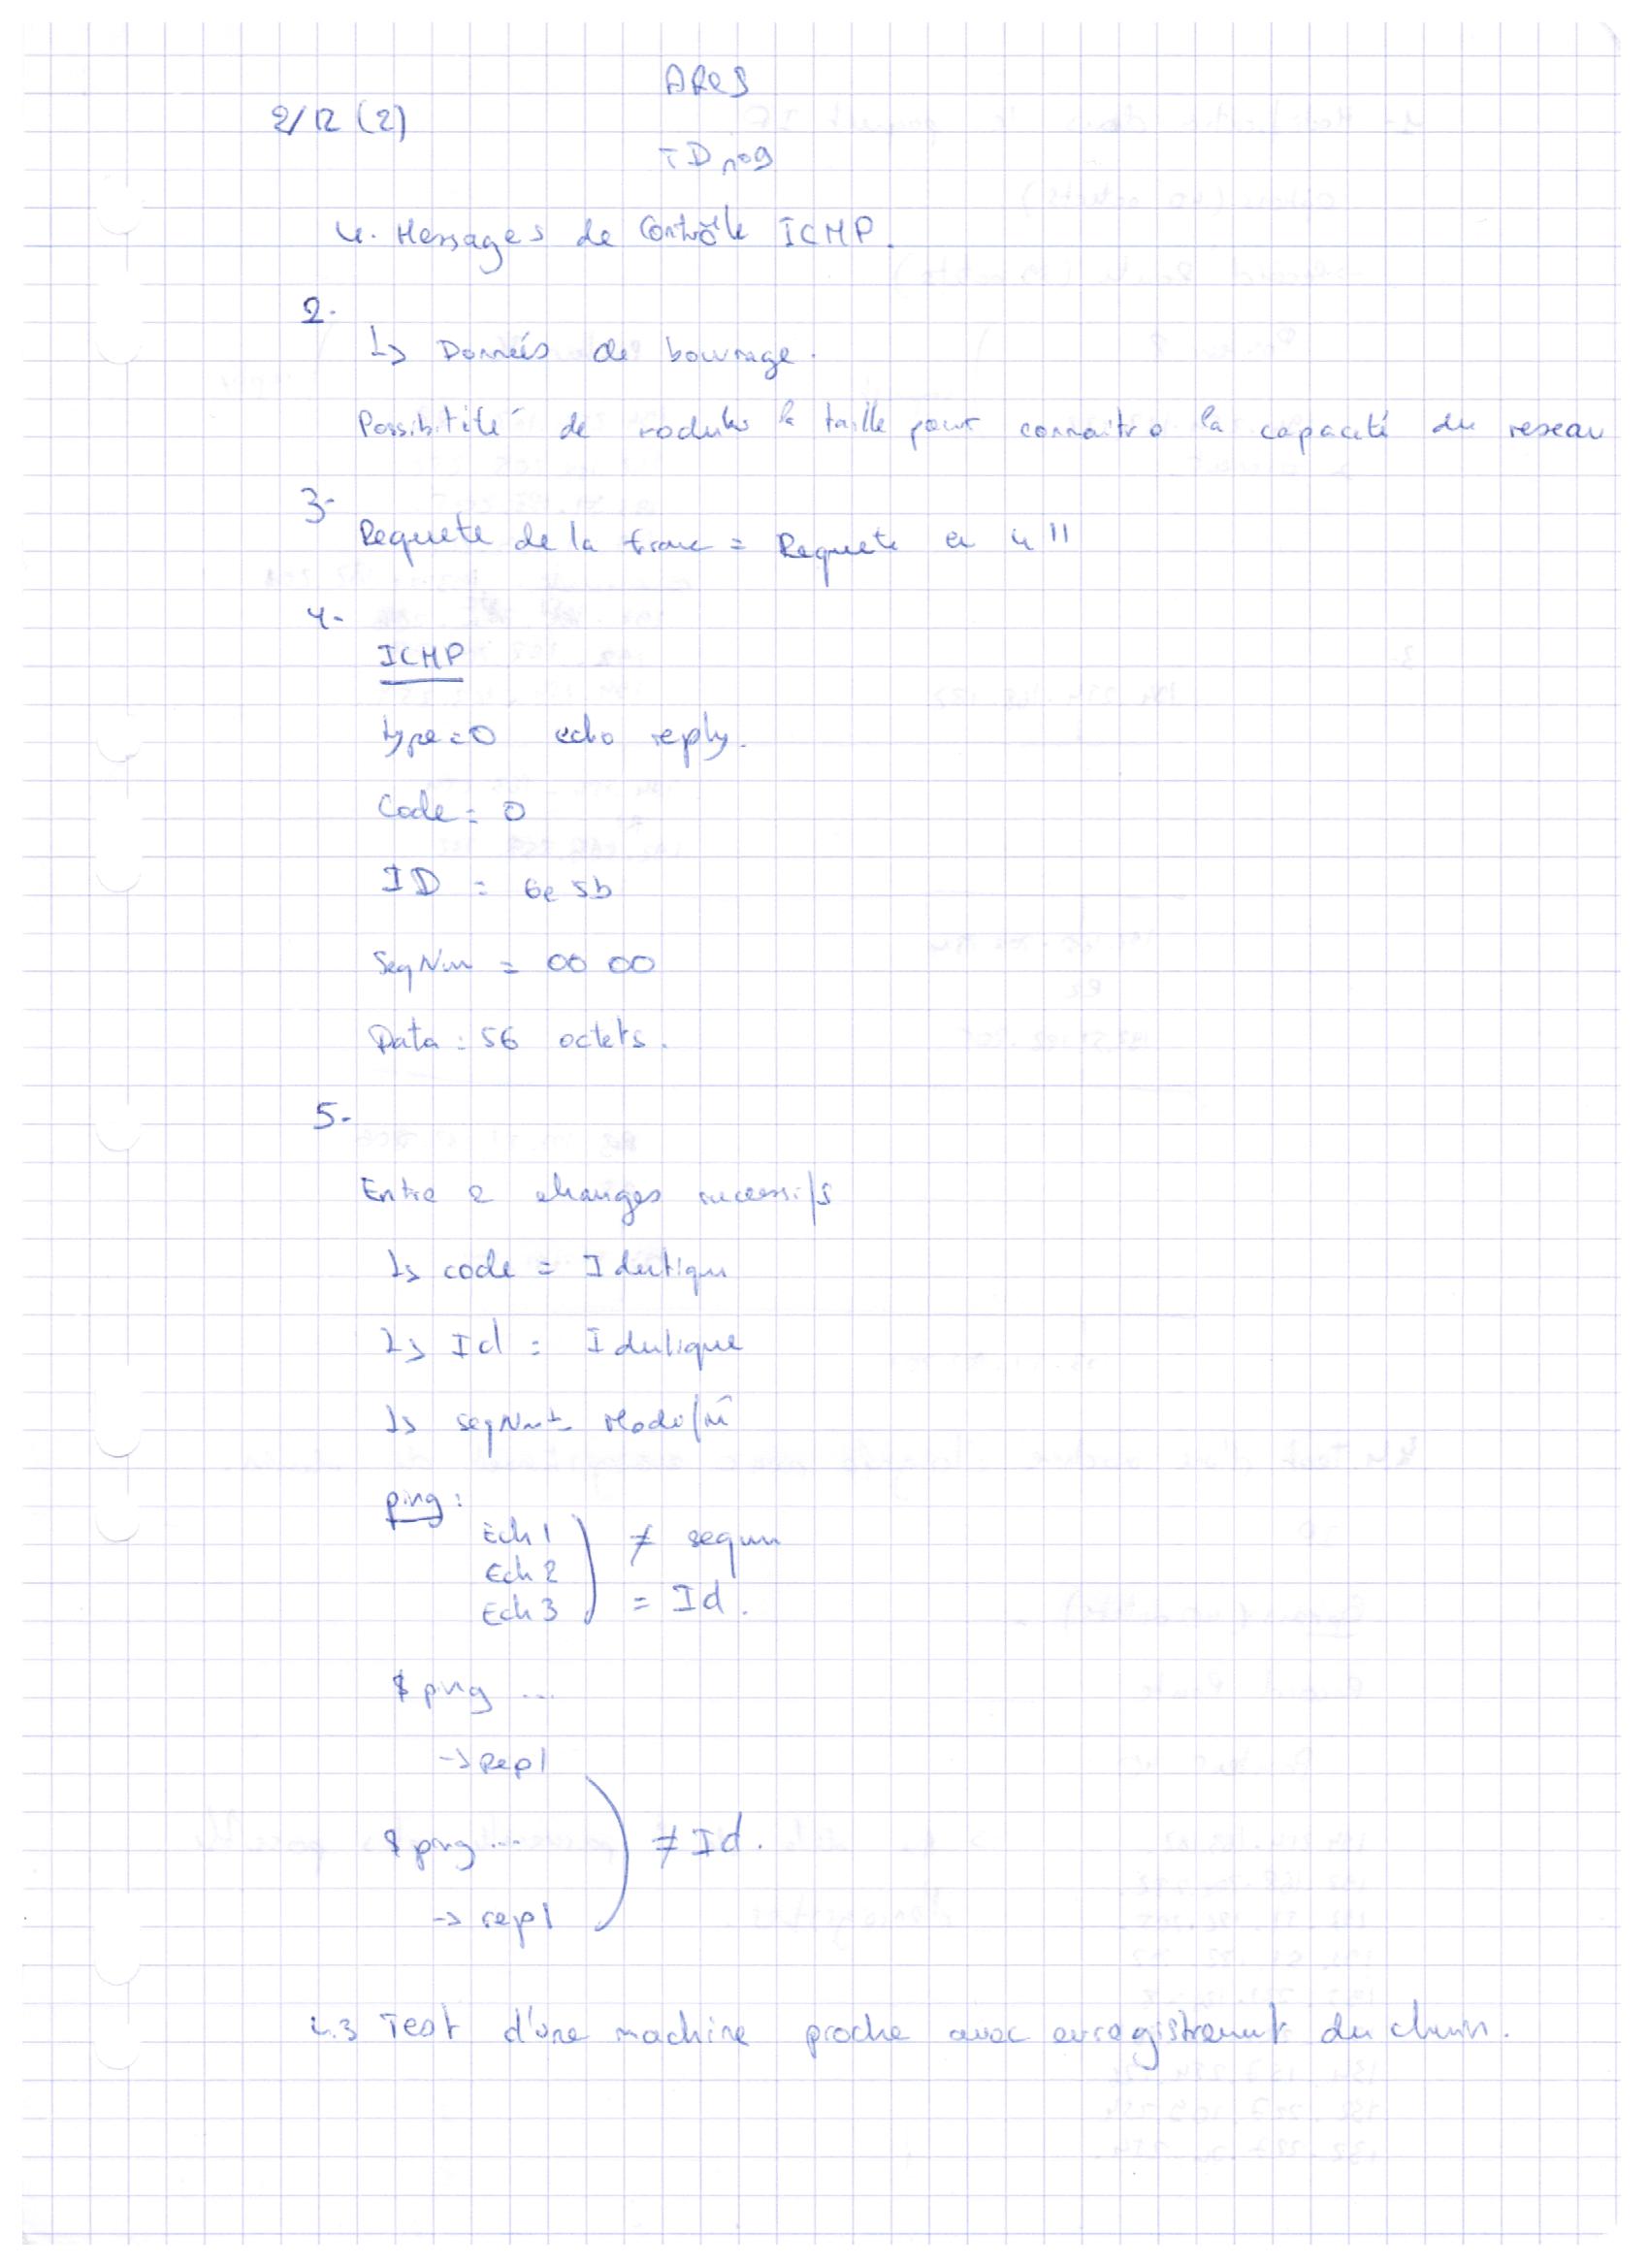 ARES
2/12 (2)
TD n°9
4. Messages de Contrôle ICMP.
2.
↳ Données de bourrage.
Possibilité de moduler la taille pour connaitre la capacité du reseau
3-
Requete de la trame = Requete
4-
ICMP
type = 0 echo reply.
Code = 0
ID = 6e 5b
SeqNum = 00 00
Data : 56 octets.
5-
Entre 2 echanges successifs
↳ code = Identique
↳ Id = Identique
↳ seqNum = Modifié
ping :
Ech 1
Ech 2
Ech 3
≠ seqnum
= Id.
$ ping ...
→ Rep 1
$ ping ...
→ rep 1
≠ Id.
4.3 Test d'une machine proche avec enregistrement du chemin.